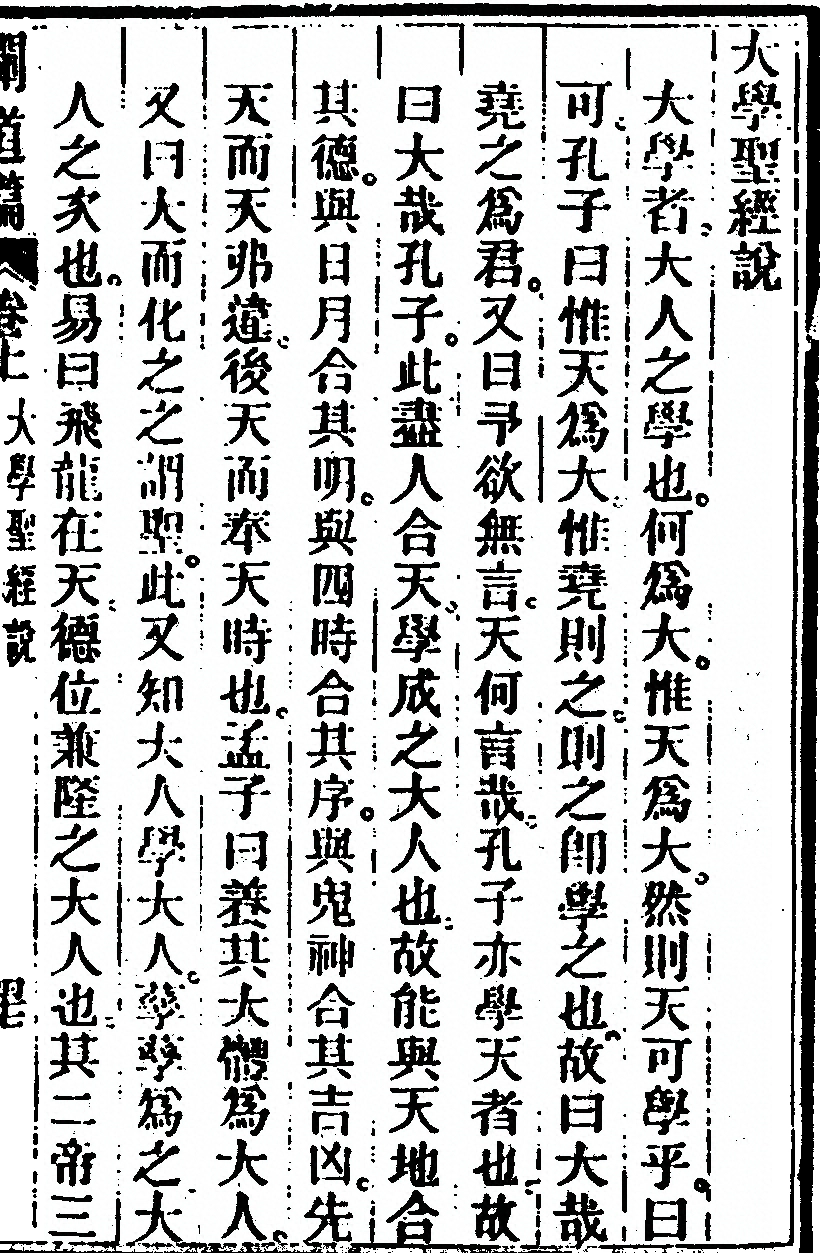 大學聖經說
大學者大人之學也何爲大惟天爲大然則天可學乎曰
可孔子曰惟天爲大惟堯則之則之卽學之也故曰大哉
堯之爲君又曰予欲無言天何言哉孔子亦學天者也故
曰大哉孔子此盡人合天學成之大人也故能與天地合
其德與日月合其明與四時合其序與鬼神合其吉凶先
天而天弗違後天而奉天時也孟子曰養其大體爲大人
又曰大而化之之謂聖此又知大人學大人學爲之大
人之次也易曰飛龍在天德位兼隆之大人也其二帝三
闢道篇 卷上 大學聖經說